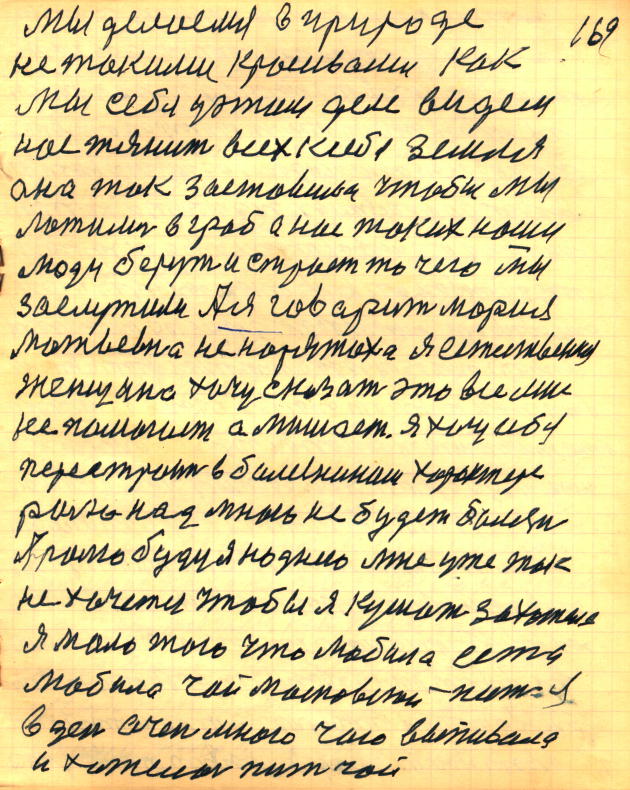 Мы делаемся в природе 169
не такими красивами как
мы себя в этом деле видем
нас тянит всех к себе земля
она так заставила чтобы мы
ложили в гроб а нас таких наши
люди берут и
заслужили А я говарит мария
матвевна не наряжоха я естественная
женщина хочу сказат это все мне
не помогает а мишает. я хочу себя
перестроит в болезнином характере
надо мною не будет болезн
Я буду я мне уже так
не хочется чтобы я кушат захотела
я мало того что любила
любила чай пит я
в ден очен много чаю выпивала
и хотелос пит чай